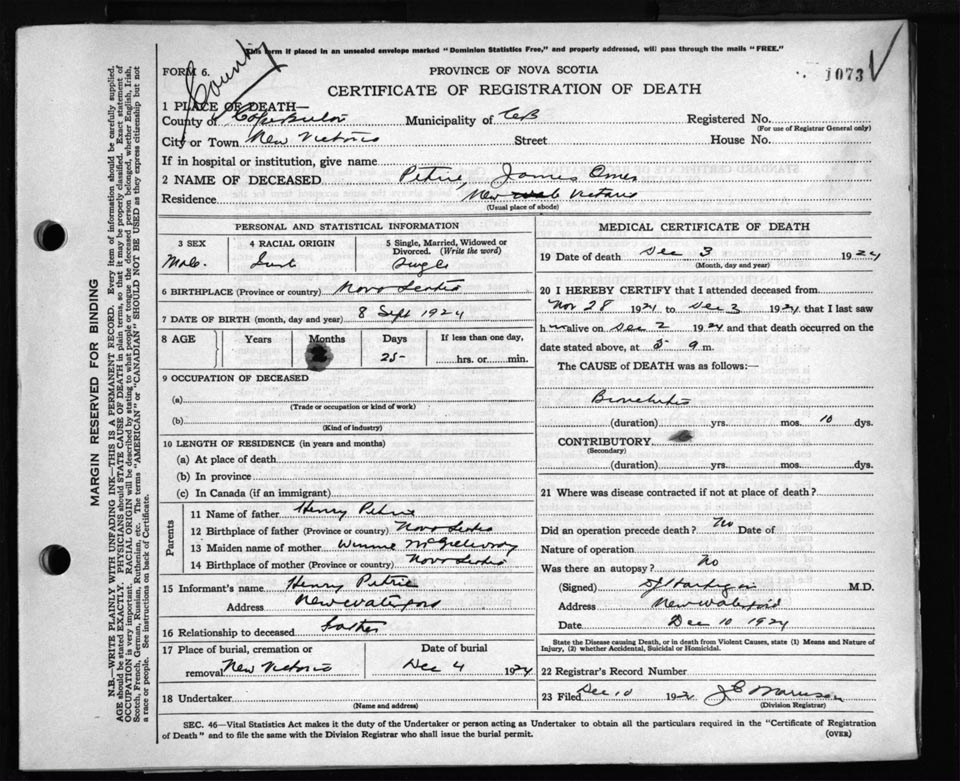 This form if placed in an unsealed envelope marked "Dominion Statistics Free," and properly addressed, will pass through the mails "FREE."
County
FORM 6.
PROVINCE OF NOVA SCOTIA
1073
CERTIFICATE OF REGISTRATION OF DEATH
1 PLACE OF DEATH—
County of Cape Breton Municipality of CB Registered No.
(For use of Registrar General only)
City or Town New Victoria Street House No.
If in hospital or institution, give name
2 NAME OF DECEASED Petrie James Omer
Residence New Victoria
(Usual place of abode)
PERSONAL AND STATISTICAL INFORMATION
3 SEX 4 RACIAL ORIGIN 5 Single, Married, Widowed or Divorced. (Write the word)
Male. Single
6 BIRTHPLACE (Province or country) Nova Scotia
7 DATE OF BIRTH (month, day and year) 8 Sept 1924
8 AGE Years Months Days If less than one day,
25 hrs. or min.
9 OCCUPATION OF DECEASED
(a)
(Trade or occupation or kind of work)
(b)
(Kind of industry)
10 LENGTH OF RESIDENCE (in years and months)
(a) At place of death
(b) In province
(c) In Canada (if an immigrant)
Parents
11 Name of father Henry Petrie
12 Birthplace of father (Province or country) Nova Scotia
13 Maiden name of mother Winnie
14 Birthplace of mother (Province or country) Nova Scotia
15 Informant's name Henry Petrie
Address New Waterford
16 Relationship to deceased Father
17 Place of burial, cremation or removal Date of burial
New Victoria Dec 4 1924
18 Undertaker
(Name and address)
MEDICAL CERTIFICATE OF DEATH
19 Date of death Dec 3 1924
(Month, day and year)
20 I HEREBY CERTIFY that I attended deceased from
Nov 28 1924 to Dec 3 1924 that I last saw
h m alive on Dec 2 1924 and that death occurred on
date stated above, at 5 a m.
The CAUSE of DEATH was as follows:—
Bronchitis
(duration) yrs. mos. 10 dys.
CONTRIBUTORY
(Secondary)
(duration) yrs. mos. dys.
21 Where was disease contracted if not at place of death?
Did an operation precede death? No Date of
Nature of operation
Was there an autopsy? No
(Signed) M.D.
Address New Waterford
Date Dec 10 1924
State the Disease causing Death, or in death from Violent Causes, state (1) Means and Nature of
Injury, (2) whether Accidental, Suicidal or Homicidal.
22 Registrar's Record Number
23 Filed Dec 10 192
(Division Registrar)
SEC. 46—Vital Statistics Act makes it the duty of the Undertaker or person acting as Undertaker to obtain all the particulars required in the "Certificate of Registration
of Death" and to file the same with the Division Registrar who shall issue the burial permit. (OVER)
MARGIN RESERVED FOR BINDING
N.B.—WRITE PLAINLY WITH UNFADING INK—THIS IS A PERMANENT RECORD. Every item of information should be carefully supplied.
AGE should be stated EXACTLY. PHYSICIANS should STATE CAUSE OF DEATH in plain terms, so that it may be properly classified. Exact statement of
OCCUPATION is very important. RACIAL ORIGIN will be described by stating to what people or tongue the deceased person belonged, whether English, Irish,
Scotch, French, German, Russian, Ruthenian, etc. The terms "AMERICAN" or "CANADIAN" SHOULD NOT BE USED as they express citizenship but not
a race or people. See instructions on back of Certificate.